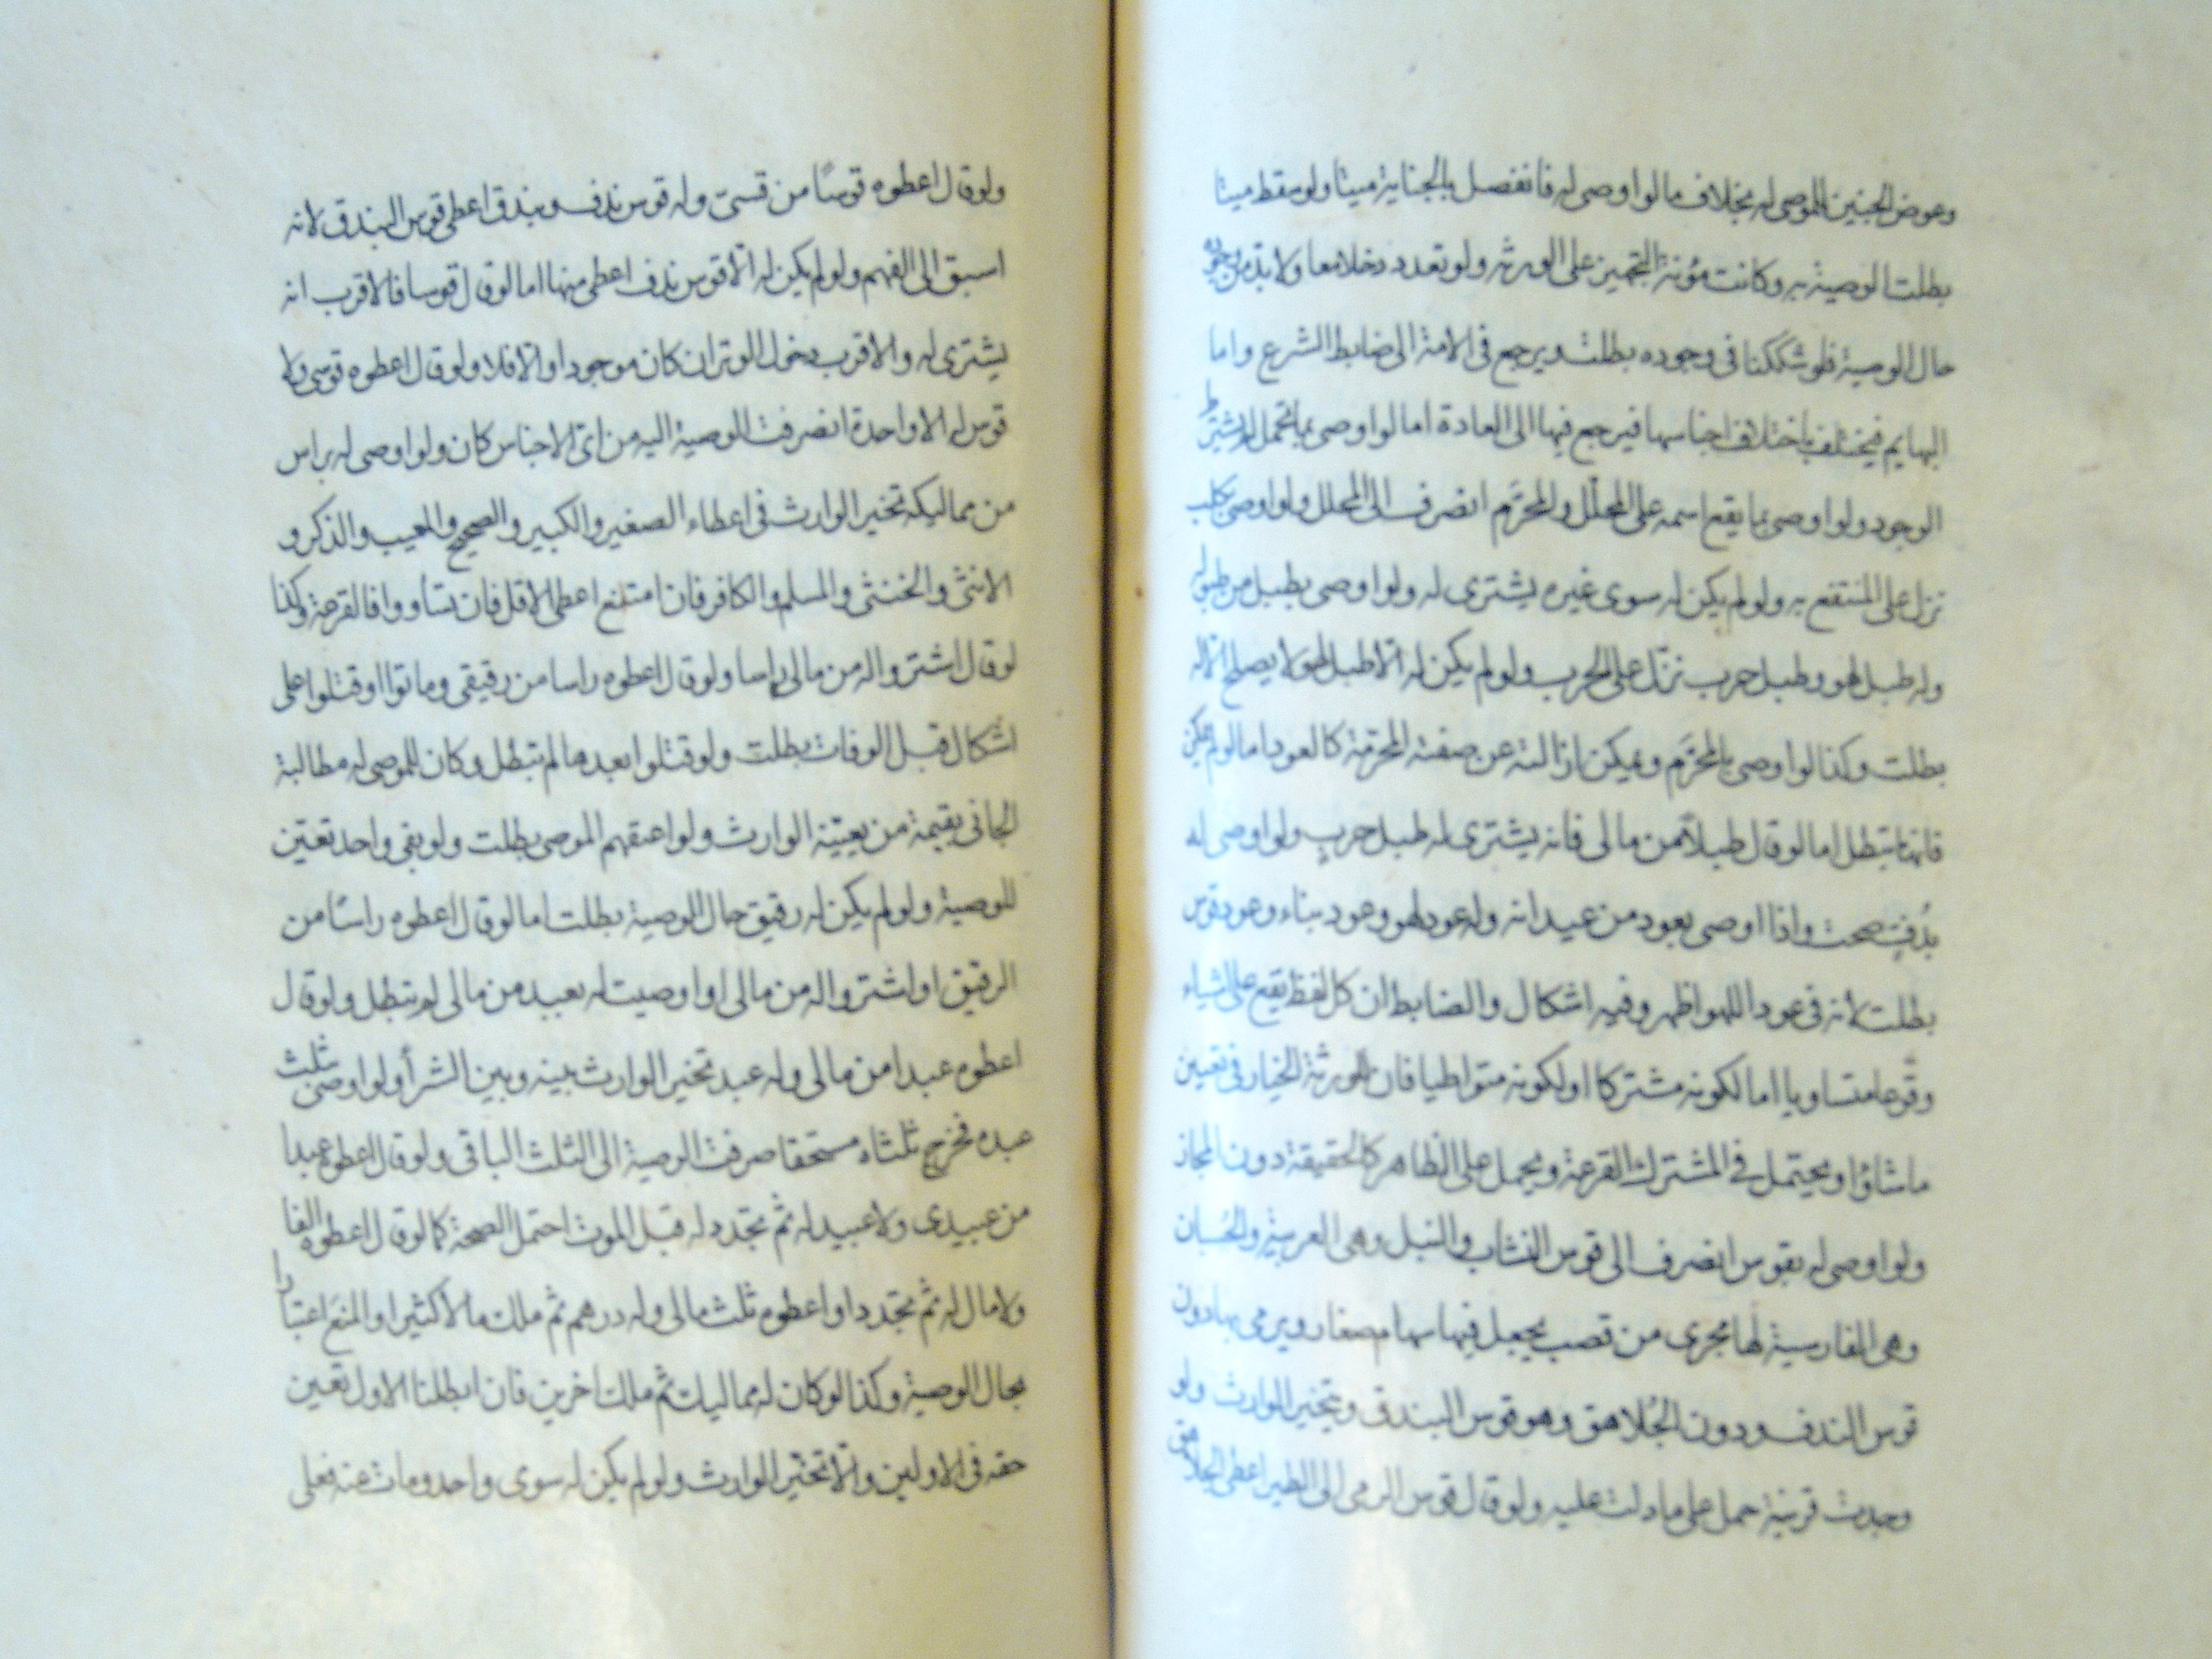 وعوض الجنين للموصى له بخلاف ما لو اوصى له فانفصل بالجناية ميتا ولو سقط ميتا
بطلت الوصية به وكانت مؤنة التجهيز على الورثة ولو تعدد دخلا معا ولا بد من وجوده
حال الوصية فلو شككنا في وجوده بطلت ويرجع في الامة الى ضابط الشرع واما
البهايم فيختلف باختلاف اجناسها فيرجع فيها الى العادة اما لو اوصى بما تحمل لم يشترط
الوجود ولو اوصى بما يقع اسمه على المحلّل والمحرّم انصرف الى المحلل ولو اوصى بكلب
نزل على المنتفع به ولو لم يكن له سوى غيره يشترى له ولو اوصى بطبل من طبوله
وله طبل لهو وطبل حرب نزّل على الحرب ولو لم يكن له الّا طبل لهو لا يصلح الّا له
بطلت وكذا لو اوصى بالمحرّم ويمكن ازالته عن صفته المحرّمة كالعود اما لو لم يمكن
فانها تبطل اما لو قال طبلاً من مالى فانه يشترى له طبل حربٍ ولو اوصى له
بدُفٍ صحت واذا اوصى بعود من عيدانه وله عود لهو وعود بناء وعود قوس
بطلت لانه في عود اللهو اظهر وفيه اشكال والضابط ان كل لفظ يقع على اشياء
وقوعا متساويا اما لكونه مشتركا او لكونه متواطيا فان للورثة الخيار في تعيين
ما شاؤا ويحتمل في المشترك القرعة ويحمل على الظاهر كالحقيقة دون المجاز
ولو اوصى له بقوس انصرف الى قوس النشاب والنبل وهى العربية والحُسبان
وهى الفارسية لها مجرى من قصب يجعل فيها سهام صغار ويرمى بها دون
قوس الندف ودون الجُلاهق وهو قوس البندق ويتخير الوارث ولو
وجدت قرينة حمل على ما دلت عليه ولو قال قوس الرمى الى الطير اعطى الجلاهق
ولو قال اعطوه قوسًا من قسىّ وله قوس ندف وبندق اعطى قوس البندق لانه
اسبق الى الفهم ولو لم يكن له الّا قوس ندف اعطى منها اما لو قال قوسا فالاقرب انه
يشترى له والاقرب دخول الوتر ان كان موجودا والّا فلا ولو قال اعطوه قوسى ولا
قوس له الا واحدة انصرفت الوصية اليه من اىّ الاجناس كان ولو اوصى له براس
من مماليكه تخير الوارث في اعطاء الصغير والكبير والصحيح والمعيب والذكر و
الانثى والخنثى والمسلم والكافر فان امتنع اعطى الاقل فان تساووا فالقرعة وكذا
لو قال اشتروا له من مالى راسا ولو قال اعطوه راسا من رقيقى وماتوا او قتلوا على
اشكال قبل الوفات بطلت ولو قتلوا بعدها لم تبطل وكان للموصى له مطالبة
الجانى بقيمة من يعيّنه الوارث ولو اعتقهم الموصى بطلت ولو بقى واحد تعيّن
للوصية ولو لم يكن له رقيق حال الوصية بطلت اما لو قال اعطوه راسًا من
الرقيق او اشتروا له من مالى او اوصيت له بعبد من مالى لم تبطل ولو قال
اعطوه عبدا من مالى وله عبد تخير الوارث بينه وبين الشرأ ولو اوصى بثلث
عبده فخرج ثلثاه مستحقا صرفت الوصية الى الثلث الباقى ولو قال اعطوه عبدا
من عبيدى ولا عبيد له ثم تجدد له قبل الموت احتمل الصحة كما لو قال اعطوه الفا
ولا مال له ثم تجدد او اعطوه ثلث مالى وله درهم ثم ملك مالا كثيرا والمنع اعتبارا
بحال الوصية وكذا لو كان له مماليك ثم ملك اخرين فان ابطلنا الاول تعين
حقه في الاولين والّا تخيّر الوارث ولو لم يكن له سوى واحد ومات عنه فعلى